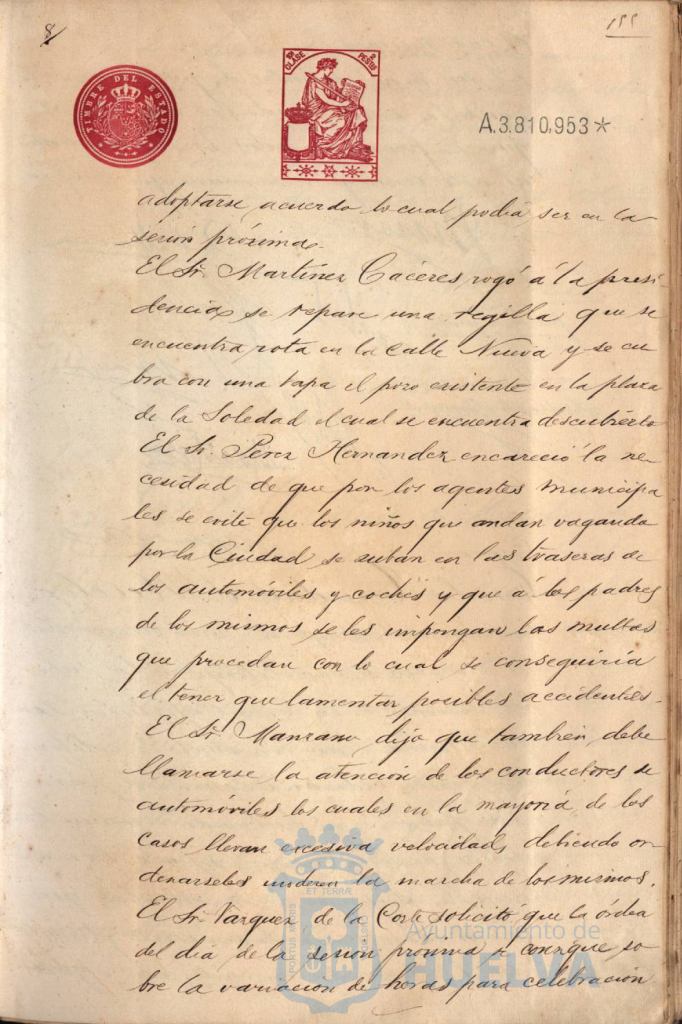 8
155
TIMBRE DEL ESTADO
10ª CLASE 2 PESETAS
A.3.810,953*
adoptarse acuerdo lo cual podía ser en la
sesión próxima.
El Sr. Martínez Cáceres, rogó á la presi-
dencia se repare una regilla que se
encuentra rota en la Calle Nueva y se cu-
bra con una tapa el pozo existente en la plaza
de la Soledad el cual se encuentra descubierto
El Sr. Perez Hernandez encareció la ne-
cesidad de que por los agentes municipa
les se evite que los niños que andan vagando
por la Ciudad se suban en las traseras de
los automóviles y coches y que á los padres
de los mismos se les impongan las multas
que procedan con lo cual se conseguiría
el tener que lamentar posibles accidentes.
El Sr. Manzano dijo que también debe
llamarse la atención de los conductores de
automóviles los cuales en la mayoría de los
casos llevan excesiva velocidad, debiendo or-
denarseles moderen la marcha de los mismos.
El Sr. Vazquez de la Corte solicitó que la órden
del dia de la sesion próxima se consigne so-
bre la variacion de horas para celebración
Ayuntamiento de
HUELVA